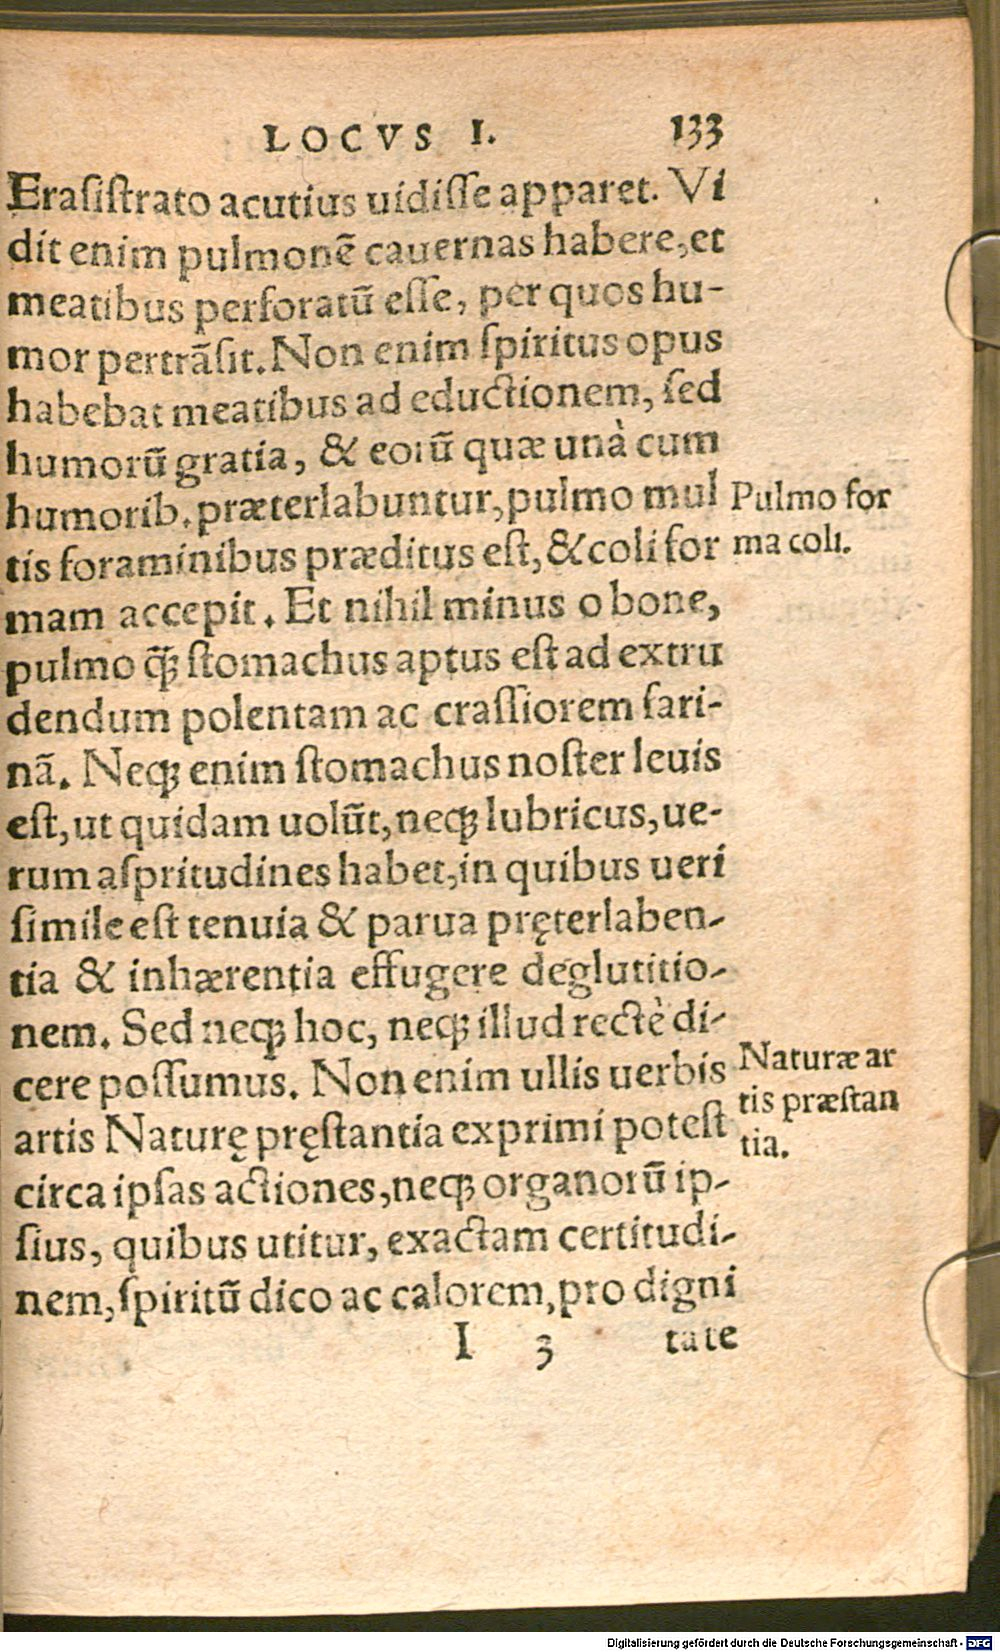 LOCVS I. 133
Erasiſtrato acutius uidiſſe apparet. Vi
dit enim pulmonẽ cauernas habere, et
meatibus perforatũ eſſe, per quos hu-
mor pertrãſit. Non enim ſpiritus opus
habebat meatibus ad eductionem, ſed
humorũ gratia, & eorũ quæ unà cum
humorib. præterlabuntur, pulmo mul
tis foraminibus præditus eſt, & coli for
mam accepit. Et nihil minus o bone,
pulmo q̃ꝫ ſtomachus aptus eſt ad extru
dendum polentam ac craſſiorem fari-
nã. Neqꝫ enim ſtomachus noſter leuis
eſt, ut quidam uolũt, neqꝫ lubricus, ue-
rum aſpritudines habet, in quibus ueri
ſimile eſt tenuia & parua pręterlaben-
tia & inhærentia effugere deglutitio-
nem. Sed neqꝫ hoc, neqꝫ illud rectè di-
cere poſſumus. Non enim ullis uerbis
artis Naturę pręſtantia exprimi poteſt
circa ipſas actiones, neqꝫ organorũ ip-
ſius, quibus utitur, exactam certitudi-
nem, ſpiritũ dico ac calorem, pro digni
I 3 tate
Pulmo for
ma coli.
Naturæ ar
tis præſtan
tia.
Digitalisierung gefördert durch die Deutsche Forschungsgemeinschaft - DFG